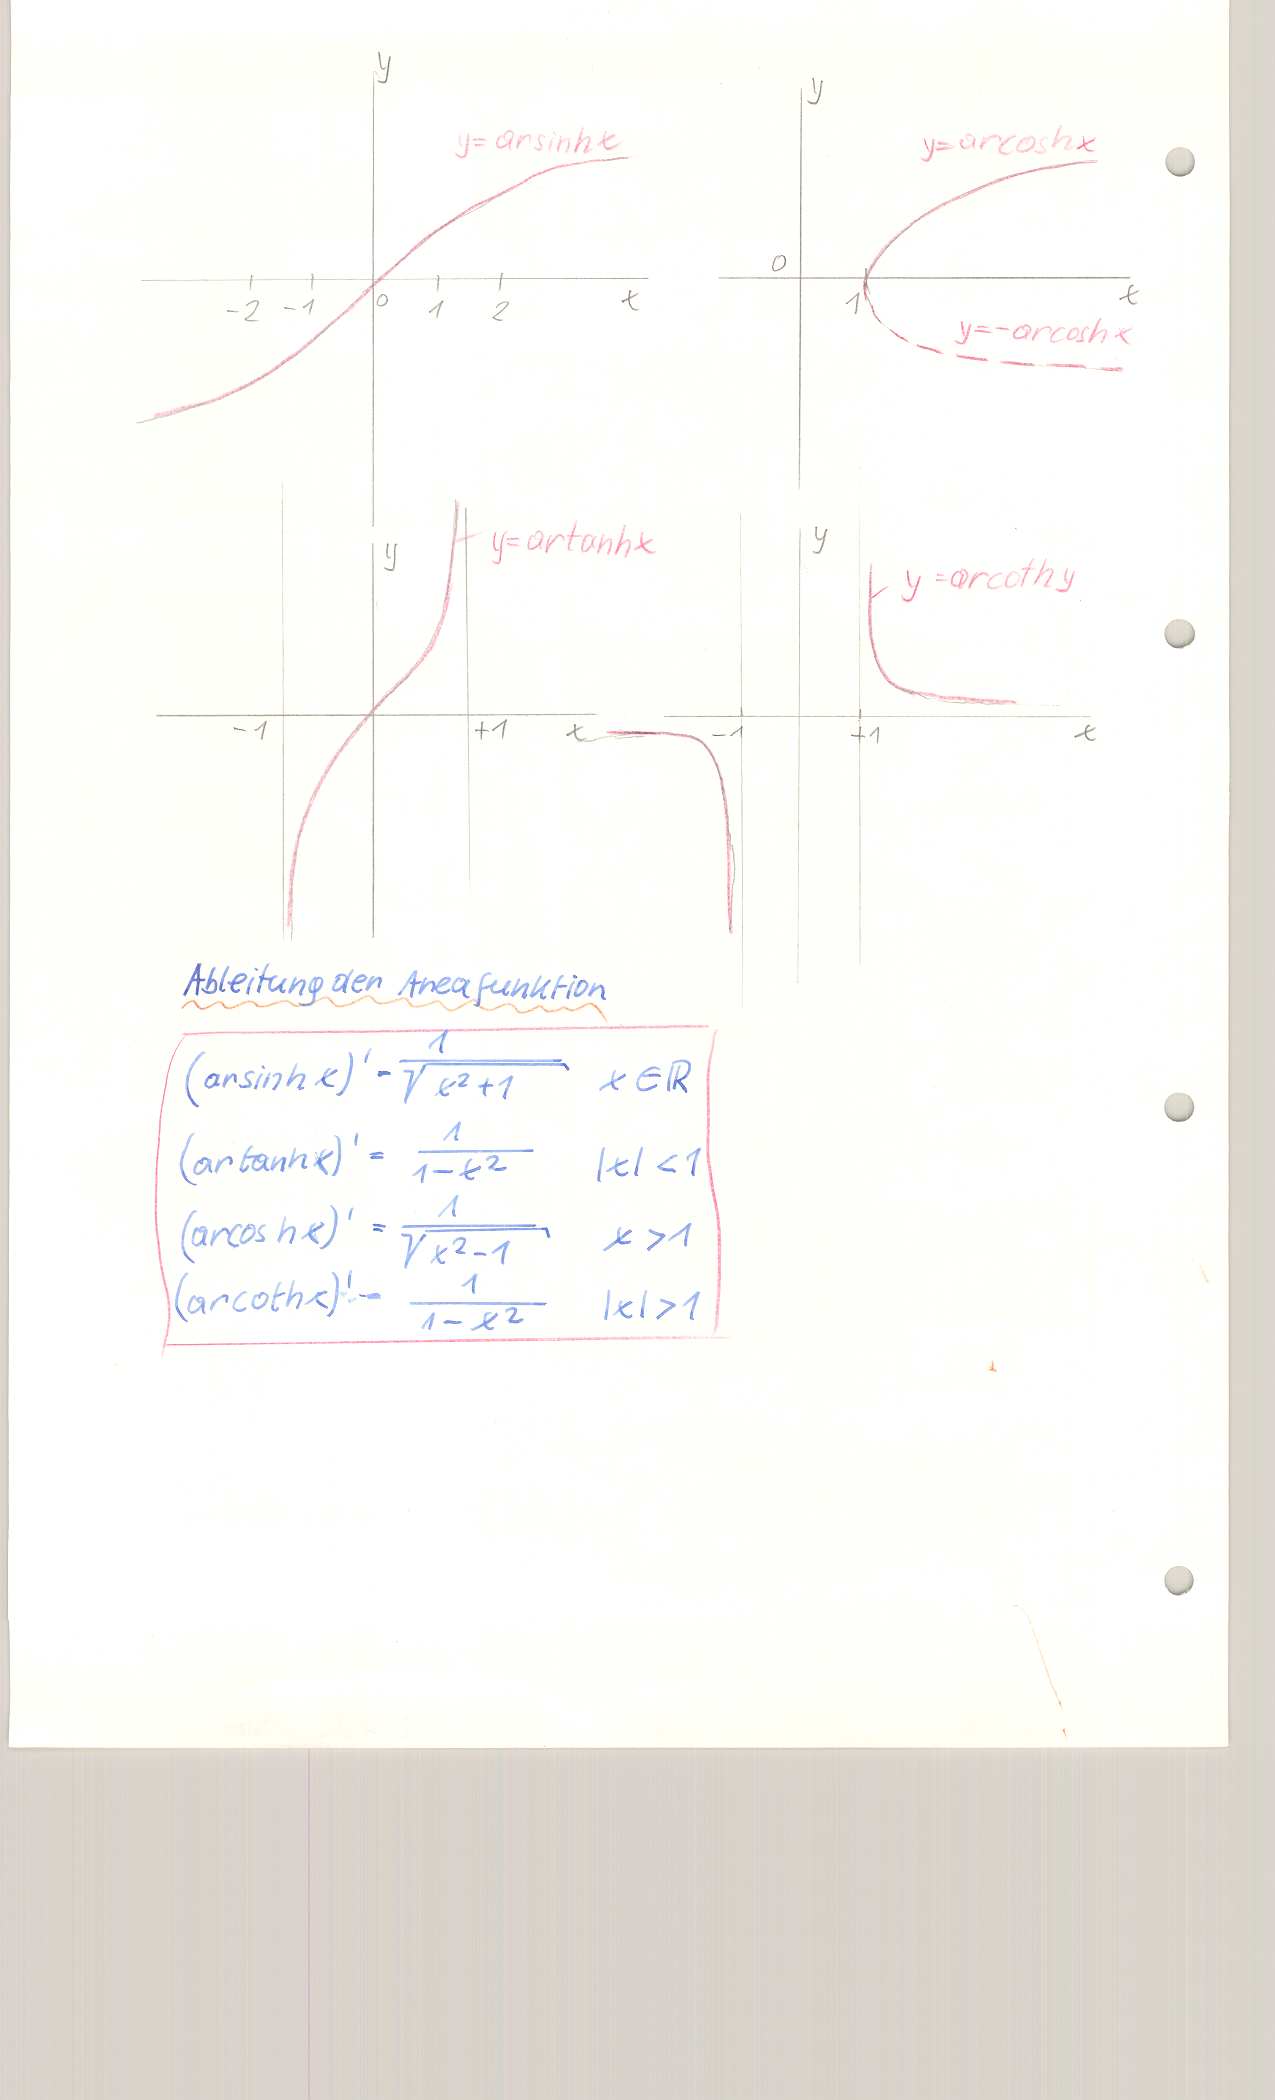 y
y=arsinhx
-2 -1 0 1 2 x
y
y=arcoshx
0
1 x
y=-arcoshx
y
y=artanhx
-1 +1 x
y
y=arcothy
-1 +1 x
Ableitung der Areafunktion
(arsinhx)' = 1/√(x²+1) x∈ℝ
(artanhx)' = 1/(1-x²) |x|<1
(arcoshx)' = 1/√(x²-1) x>1
(arcothx)' = 1/(1-x²) |x|>1